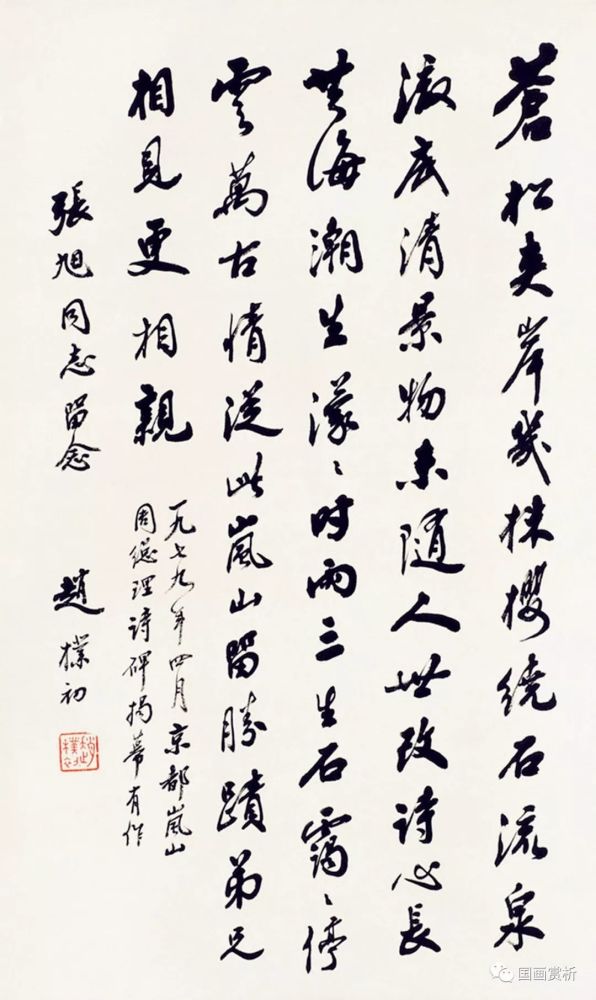 蒼松夾岸幾株櫻繞石流泉
澂底清景物未隨人世改詩心長
共海潮生濛〻時雨三生石靄〻停
雲萬古情從此嵐山留勝蹟弟兄
相見更相親
一九七九年四月京都嵐山
周總理詩碑揭幕有作
張旭同志留念
趙樸初
趙樸初
国画赏析